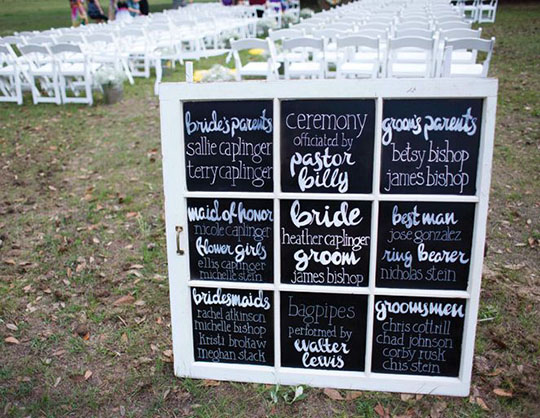 bride's parents
sallie caplinger
terry caplinger
ceremony
officiated by
pastor
billy
groom's parents
betsy bishop
james bishop
maid of honor
nicole caplinger
flower girls
ellis caplinger
michelle stein
bride
heather caplinger
groom
james bishop
best man
jose gonzalez
ring bearer
nicholas stein
bridesmaids
rachel atkinson
michelle bishop
kristi brokaw
meghan stack
bagpipes
performed by
walter
lewis
groomsmen
chris cottrill
chad johnson
corby rusk
chis stein